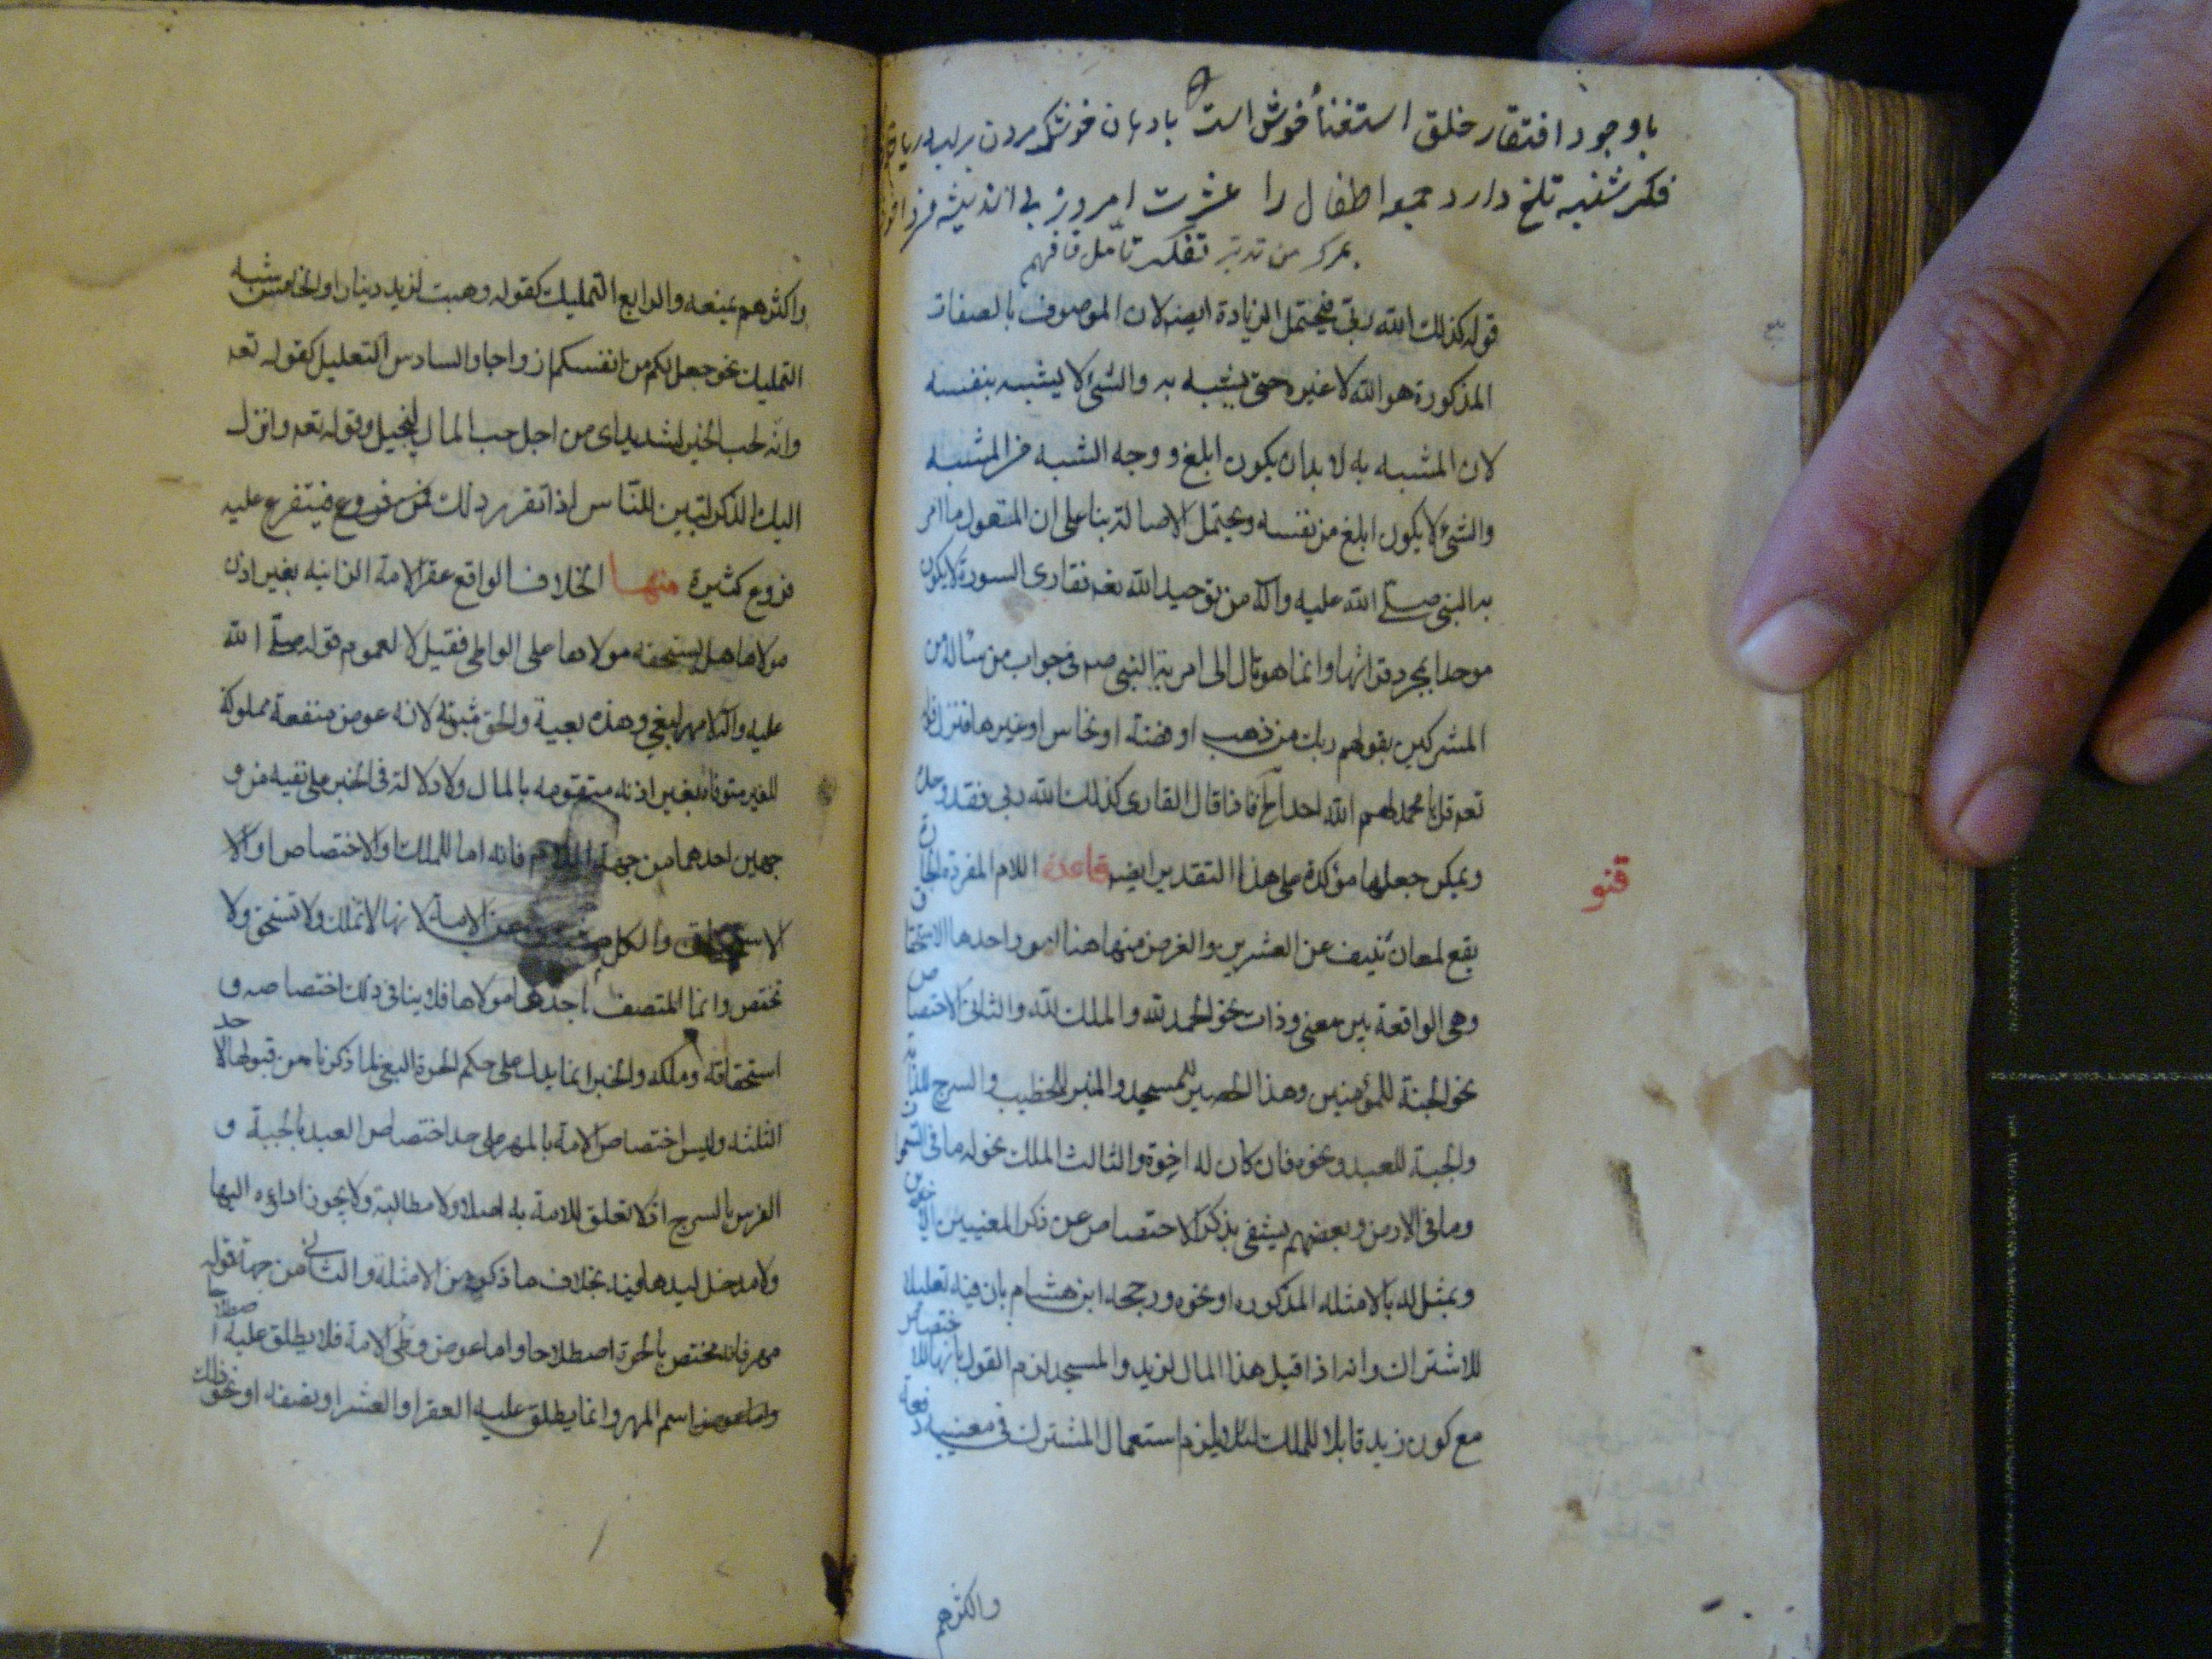 با وجود افتقار خلق استغنا خوش است با دهان خوشک مردن بر لب دریا
فکر شنبه تلخ دارد جمعه اطفال را عشرت امروز بی اندیشه فردا
تدبّر تفکّر تأمّل فافهم
قوله كذلك الله ربي فيحتمل الزيادة ايضم لان الموصوف بالصفات
المذكورة هو الله لا غيره حتى يشبه به والشئ لا يشبه بنفسه
لان المشبه به لا بد ان يكون ابلغ و وجه الشبه من المشبه
والشئ لا يكون ابلغ من نفسه ويحتمل الاصالة بنا على ان المقول ما امر
به النبي صلى الله عليه واله من توحيد الله تعم فقارى السورة لا يكون
موحدا بمجرد قرائتها وانما هو تال الى امر به النبي صم في جواب من سئاله من
المشركين بقولهم ربك من ذهب او فضة او نحاس او غيرها فنزل قوله
تعم قل يا محمد لهم الله احد آخ فاذا قال القارى كذلك الله ربي فقد وحده
ويمكن جعلها مؤكدة على هذا التقدير ايضم قاعدة اللام المفردة الجارة
قنو
يقع لمعان تنيف عن العشرين والغرض منها هنا امور احدها الاستحقاق
وهي الواقعة بين معنى وذات نحو الحمد لله والملك لله والثاني الاختصاص
نحو الجنة للمؤمنين وهذا الحصير للمسجد والمنبر للخطيب والسرج للدابة
والجبة للعبد ونحوه فان كان له اخوة والثالث الملك نحو له ما في السموات
وما في الارض وبعضهم يستغنى بذكر الاختصاص عن ذكر المعنيين الآخرين
ويمثل له بالامثله المذكوره او نحوه ورجحه ابن هشام بان فيه تعليلا
للاشتراك وانه اذا قيل هذا المال لزيد والمسجد لزم القول بانها للاختصاص
مع كون زيد قابلا للملك لئلا يلزم استعمال المشترك في معنييه دفعة
واكثرهم
واكثرهم يمنعه والرابع التمليك كقوله وهبت لزيد دينارا والخامس شبه
التمليك نحو جعل لكم من انفسكم ازواجا والسادس التعليل كقوله تعم
وانه لحب الخير لشديد اى من اجل حب المال لبخيل وقوله تعم وانزل
اليك الذكر لتبين للناس اذا تقرر ذلك فيتفرع عليه
فروع كثيرة منها الخلاف الواقع عقر الامة الزانية بغير اذن
مولاها هل يستحقه مولاها على الواطى فقيل لا لعموم قوله صلى الله
عليه واله لا مهر لبغي وهذه بغية والحق ثبوته لانه عوض منفعة مملوكة
للغير متوفاة بغير اذنه متقومة بالمال ولا دلالة في الخبر على نفيه من و
جهين احدهما من جهة اللام فانه اما للملك او الاختصاص او الا
الاستحقاق والكل عن الامة لانها لا تملك ولا تستحق ولا
تختص وانما المتصف باحدها مولاها فلا ينافى ذلك اختصاصه و
استحقاقه وملكه والخبر انما يدل على حكم الحرة البغي لما ذكرنا من قبولها لاحد
الثلثه وليس اختصاص الامة بالمهر على حد اختصاص العبد بالجبة و
الفرس بالسرج اذ لا تعلق للامة به اصلا ولا مطالبة ولا يجوز اداؤه اليها
ولا مدخل ليدها فيه بخلاف ما ذكروه من الامثلة والثاني من جهة قوله
مهر فانه مختص بالحرة اصطلاحا واما عوض وطئ الامة فلا يطلق عليه اصطلاحا
اسم المهر وانما يطلق عليه العقر او العشر او نصفه او نحو ذلك